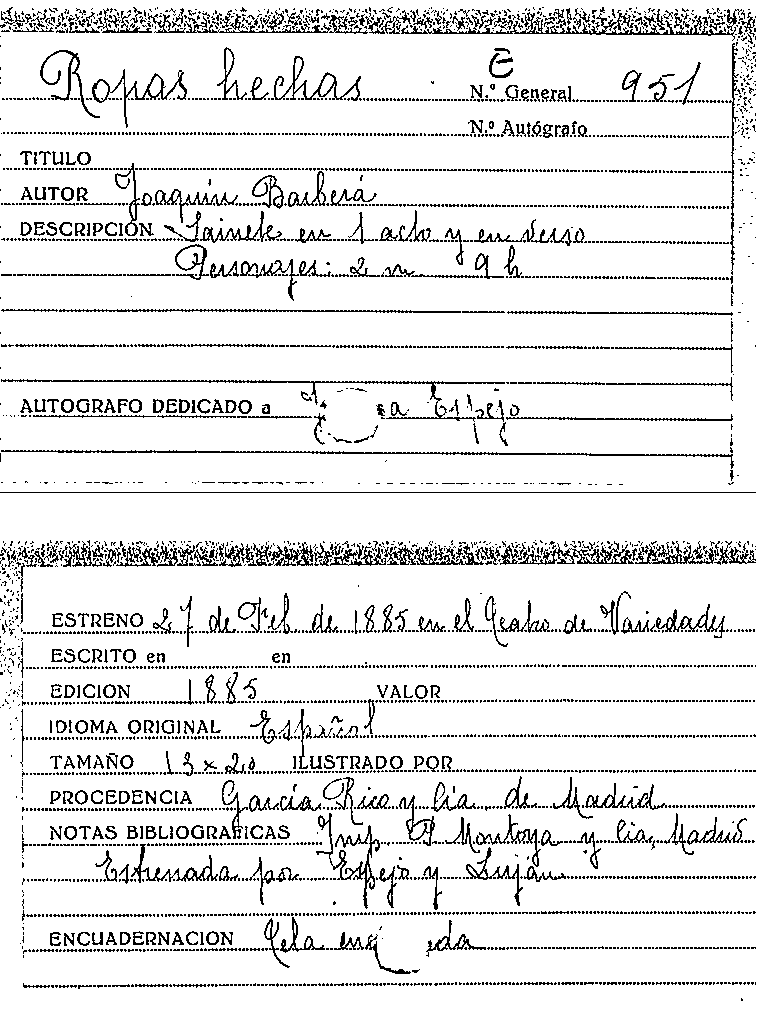 Ropas hechas
E
N.º General 951
N.º Autógrafo
TITULO
AUTOR Joaquín Barberá
DESCRIPCIÓN Sainete en 1 acto y en verso
Personajes: 2 m 9 h
AUTOGRAFO DEDICADO a a Espejo
ESTRENO 27 de Feb de 1885 en el Teatro de Variedades
ESCRITO en en
EDICION 1885 VALOR
IDIOMA ORIGINAL Español
TAMAÑO 13 x 20 ILUSTRADO POR
PROCEDENCIA García Rico y Cía de Madrid
NOTAS BIBLIOGRAFICAS Imp P Montoya y Cía, Madrid
Estrenada por Espejo y Luján
ENCUADERNACION Tela